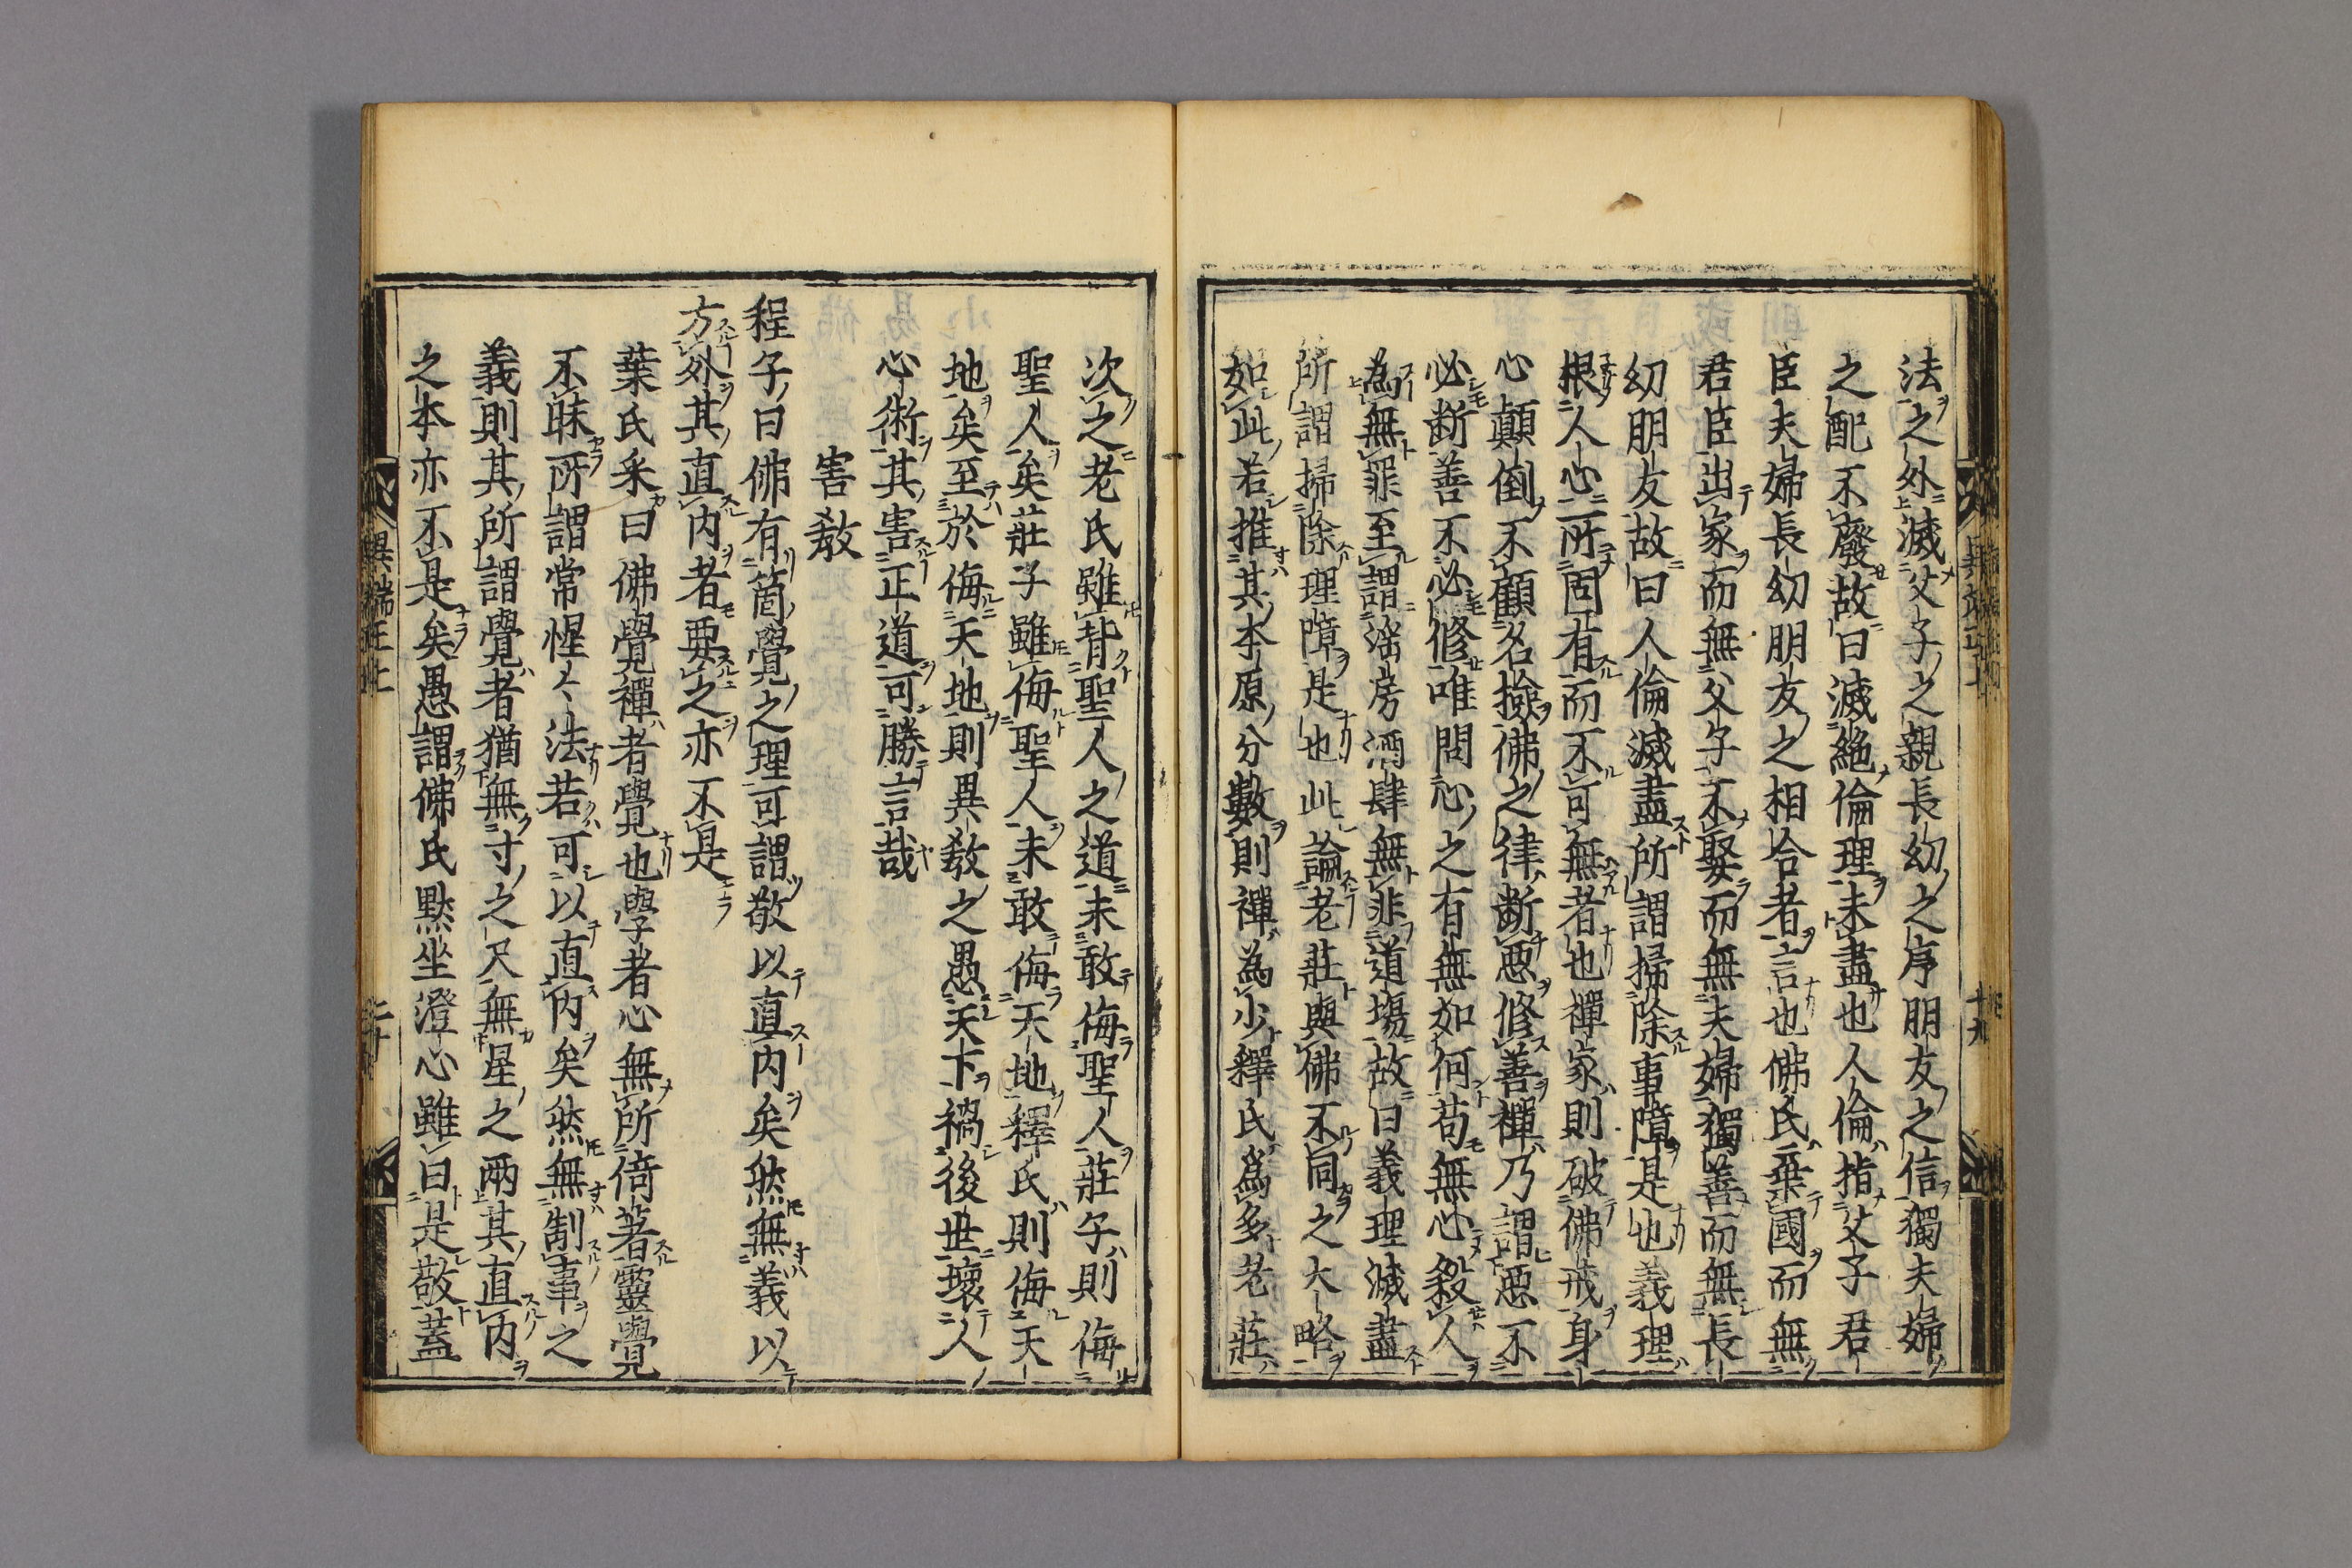 法之外滅父子之親長幼之序朋友之信獨夫婦
之配不廢故曰滅絶倫理未盡也人倫指父子君
臣夫婦長幼朋友之相合者言也佛氏棄國而無
君臣出家而無父子不娶而無夫婦獨善而無長
幼朋友故曰人倫滅盡所謂掃除事障是也義理
根人心所固有而不可無者也禪家則破佛戒身
心顛倒不顧名撿佛之律断惡修善禪乃謂惡不
必断善不必修唯問心之有無如何苟無心殺人
為無罪至謂滛房酒肆無非道塲故曰義理滅盡
所謂掃除理障是也此論老莊與佛不同之大略
如此若推其本原分數則禪為少釋氏為多老莊
次之老氏雖背聖人之道未敢侮聖人莊子則侮
聖人矣莊子雖侮聖人未敢侮天地釋氏則侮天
地矣至於侮天地則異教之愚天下禍後世壞人
心術其害正道可勝言哉
害教
程子曰佛有箇覺之理可謂敬以直内矣然無義以
方外其直内者要之亦不是
葉氏采曰佛覺禪者覺也學者心無所倚著靈覺
不昧所謂常惺〻法若可以直内矣然無制事之
義則其所謂覺者猶無寸之尺無星之兩其直内
之本亦不是矣愚謂佛氏黙坐澄心雖曰是敬蓋
異端正上
二十
十九